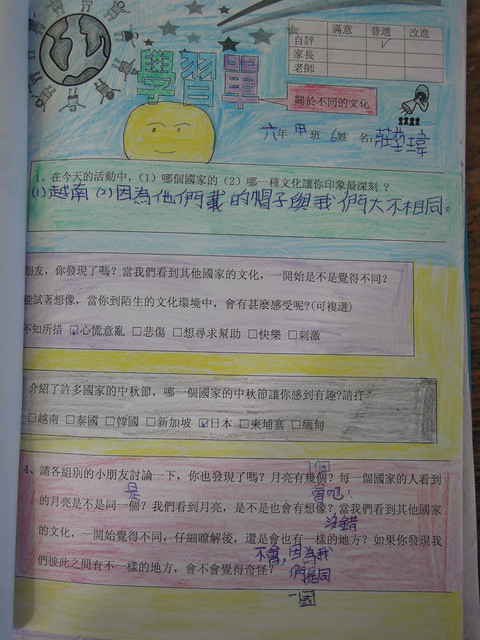 滿意 普通 改進
自評 ✓
家長
老師
學習單
關於不同的文化
六年 甲 班 6 姓名:莊哲瑋
1、在今天的活動中，(1) 哪個國家的 (2) 哪一種文化讓你印象最深刻？
(1)越南 (2)因為他們戴的帽子與我們大不相同。
朋友，你發現了嗎？當我們看到其他國家的文化，一開始是不是覺得不同？
能試著想像，當你到陌生的文化環境中，會有甚麼感受呢?(可複選)
不知所措 ☑心慌意亂 □悲傷 □想尋求幫助 □快樂 □刺激
介紹了許多國家的中秋節，哪一個國家的中秋節讓你感到有趣?請打
□越南 □泰國 □韓國 □新加坡 ☑日本 □柬埔寨 □緬甸
1個
4、請各組別的小朋友討論一下，你也發現了嗎？月亮有幾個？每一個國家的人看到
是 會吧!
的月亮是不是同一個？我們看到月亮，是不是也會有想像？當我們看到其他國家
沒錯
的文化，一開始覺得不同，仔細瞭解後，還是會也有一樣的地方？如果你發現我
不會，因為我
們彼此之間有不一樣的地方，會不會覺得奇怪？
們是同
一國